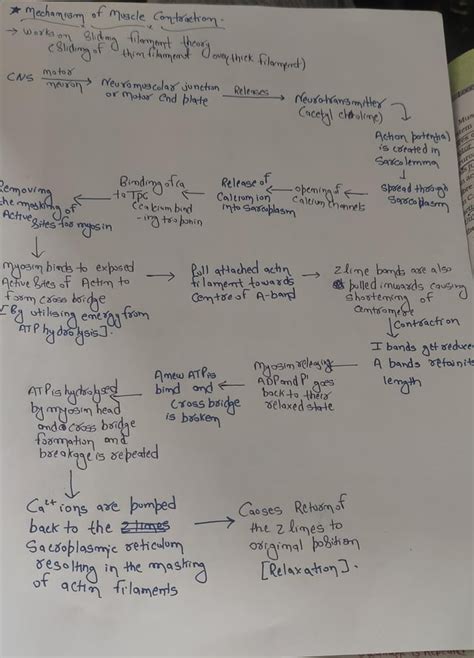 * Mechanism of Muscle Contraction.
→ works on Sliding filament theory
(Sliding of thin filament over thick filament)
CNS motor neuron → Neuromuscular junction
or Motor end plate Releases → Neurotransmitter
(acetyl choline)
Action potential
is created in
Sarcolemma
Spread through
Sarcoplasm
opening of
Calcium channels
Release of
Calcium ion
into Sarcoplasm
Binding of ca
to TPC
(calcium bind
-ing troponin
Removing
the masking of
Active Sites for myosin
Myosin binds to exposed
Active Sites of Actin to
form cross bridge
[By utilising energy from
ATP hydrolysis].
Pull attached actin
filament towards
Centre of A-band
Z line bands are also
pulled inwards causing
shortening of
Centromere
Contraction
I bands get reduced
A bands retain its
length
Myosin releasing
ADP and P' goes
back to their
relaxed state
A new ATP is
bind and
Cross bridge
is broken
ATP is hydrolysed
by myosin head
and cross bridge
formation and
breakage is repeated
Ca²⁺ ions are pumped
back to the
Sacroplasmic reticulum
resulting in the masking
of actin filaments
Causes Return of
the Z lines to
original position
[Relaxation].